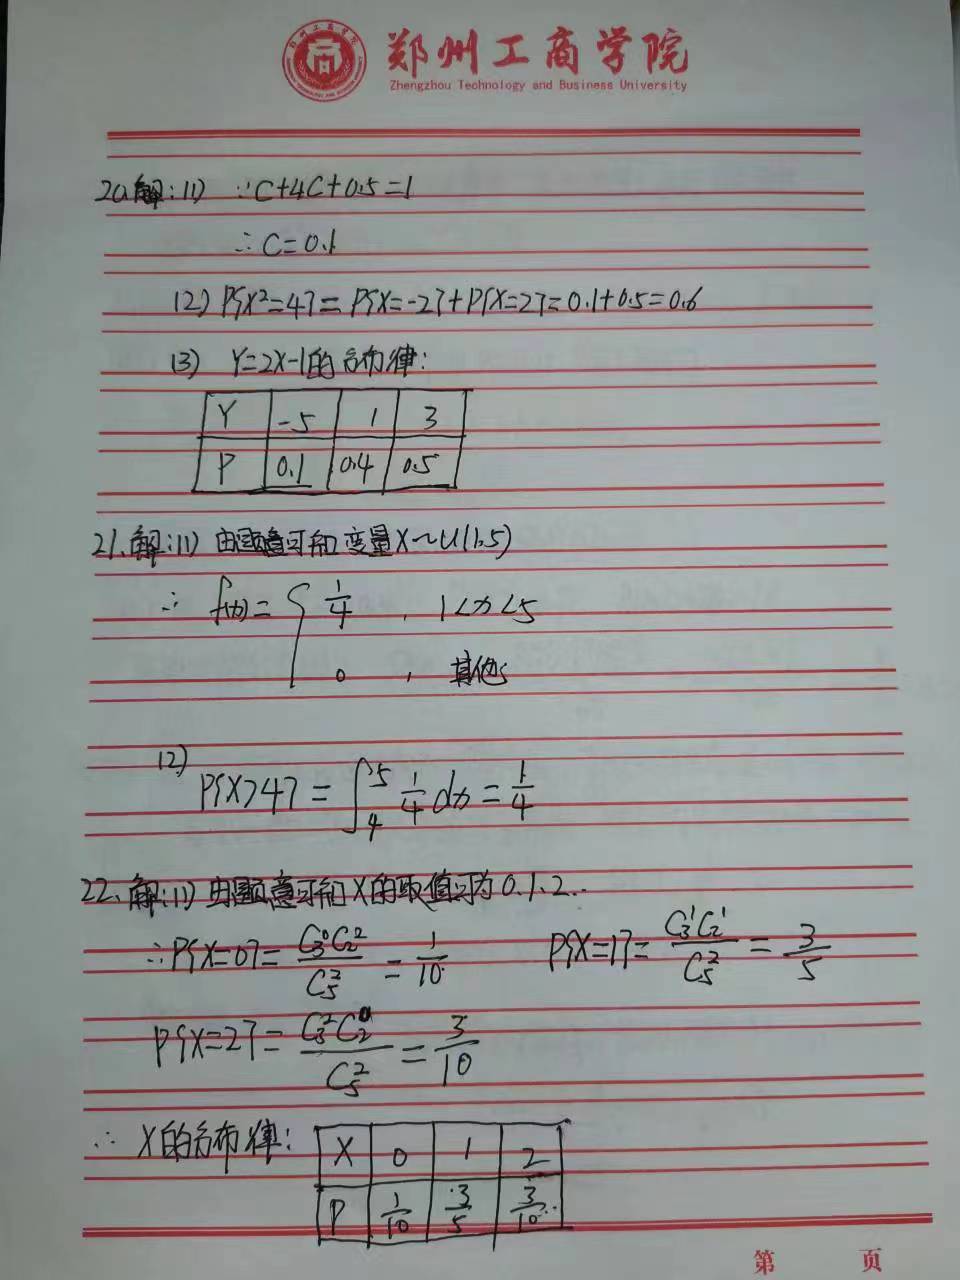 郑州工商学院
Zhengzhou Technology and Business University
20.解:(1) ∵C+4C+0.5=1
∴C=0.1
(2) P{X²=4}=P{X=-2}+P{X=2}=0.1+0.5=0.6
(3) Y=2X-1的分布律:
Y -5 1 3
P 0.1 0.4 0.5
21.解:(1) 由题意可知变量X~U(1,5)
∴ f(x)={ 1/4 , 1<x<5
0 , 其他
(2)
P{X>4}=∫₄⁵ 1/4 dx=1/4
22.解:(1)由题意可知X的取值可为0.1.2..
∴P{X=0}=C₃⁰C₂²/C₅²=1/10 P{X=1}=C₃¹C₂¹/C₅²=3/5
P{X=2}=C₃²C₂⁰/C₅²=3/10
∴ X的分布律:
X 0 1 2
P 1/10 3/5 3/10
第 页